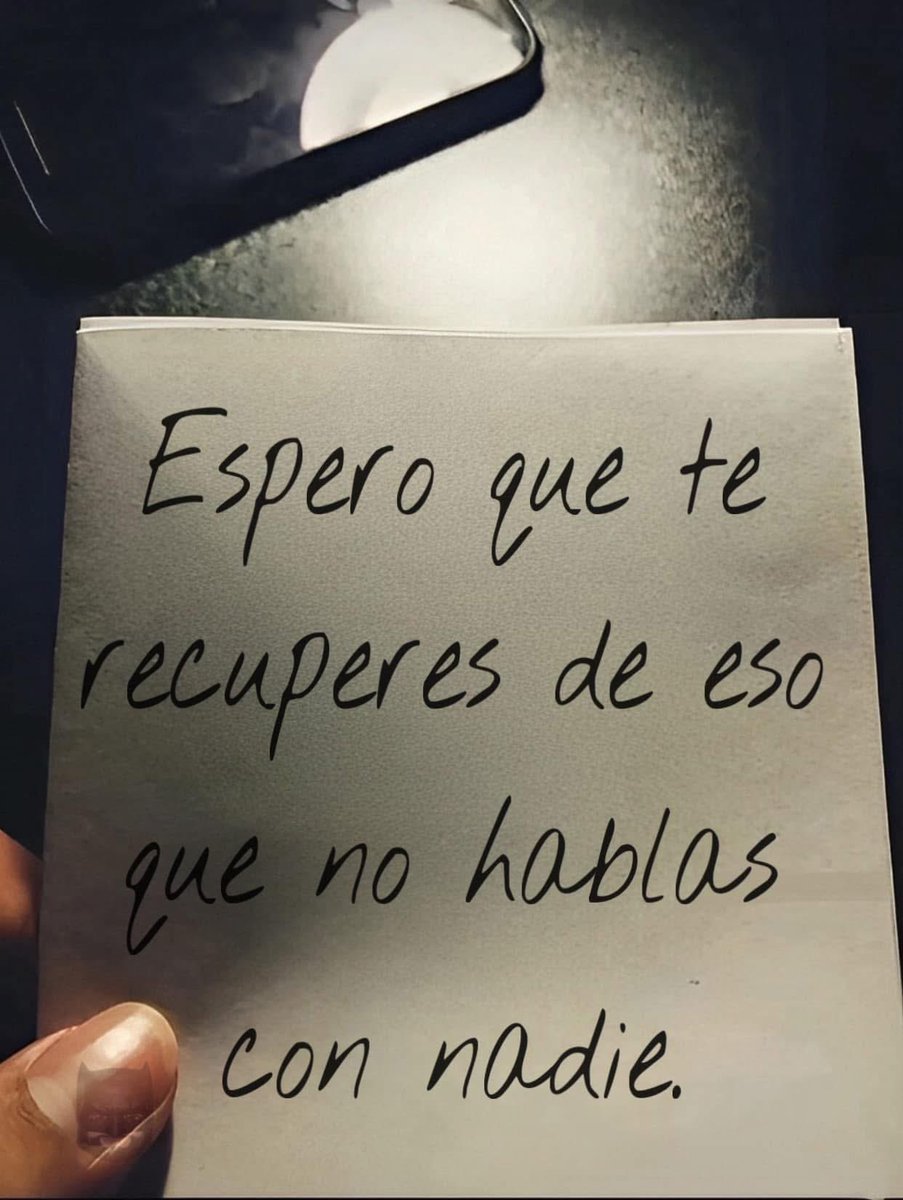 Espero que te
recuperes de eso
que no hablas
con nadie.